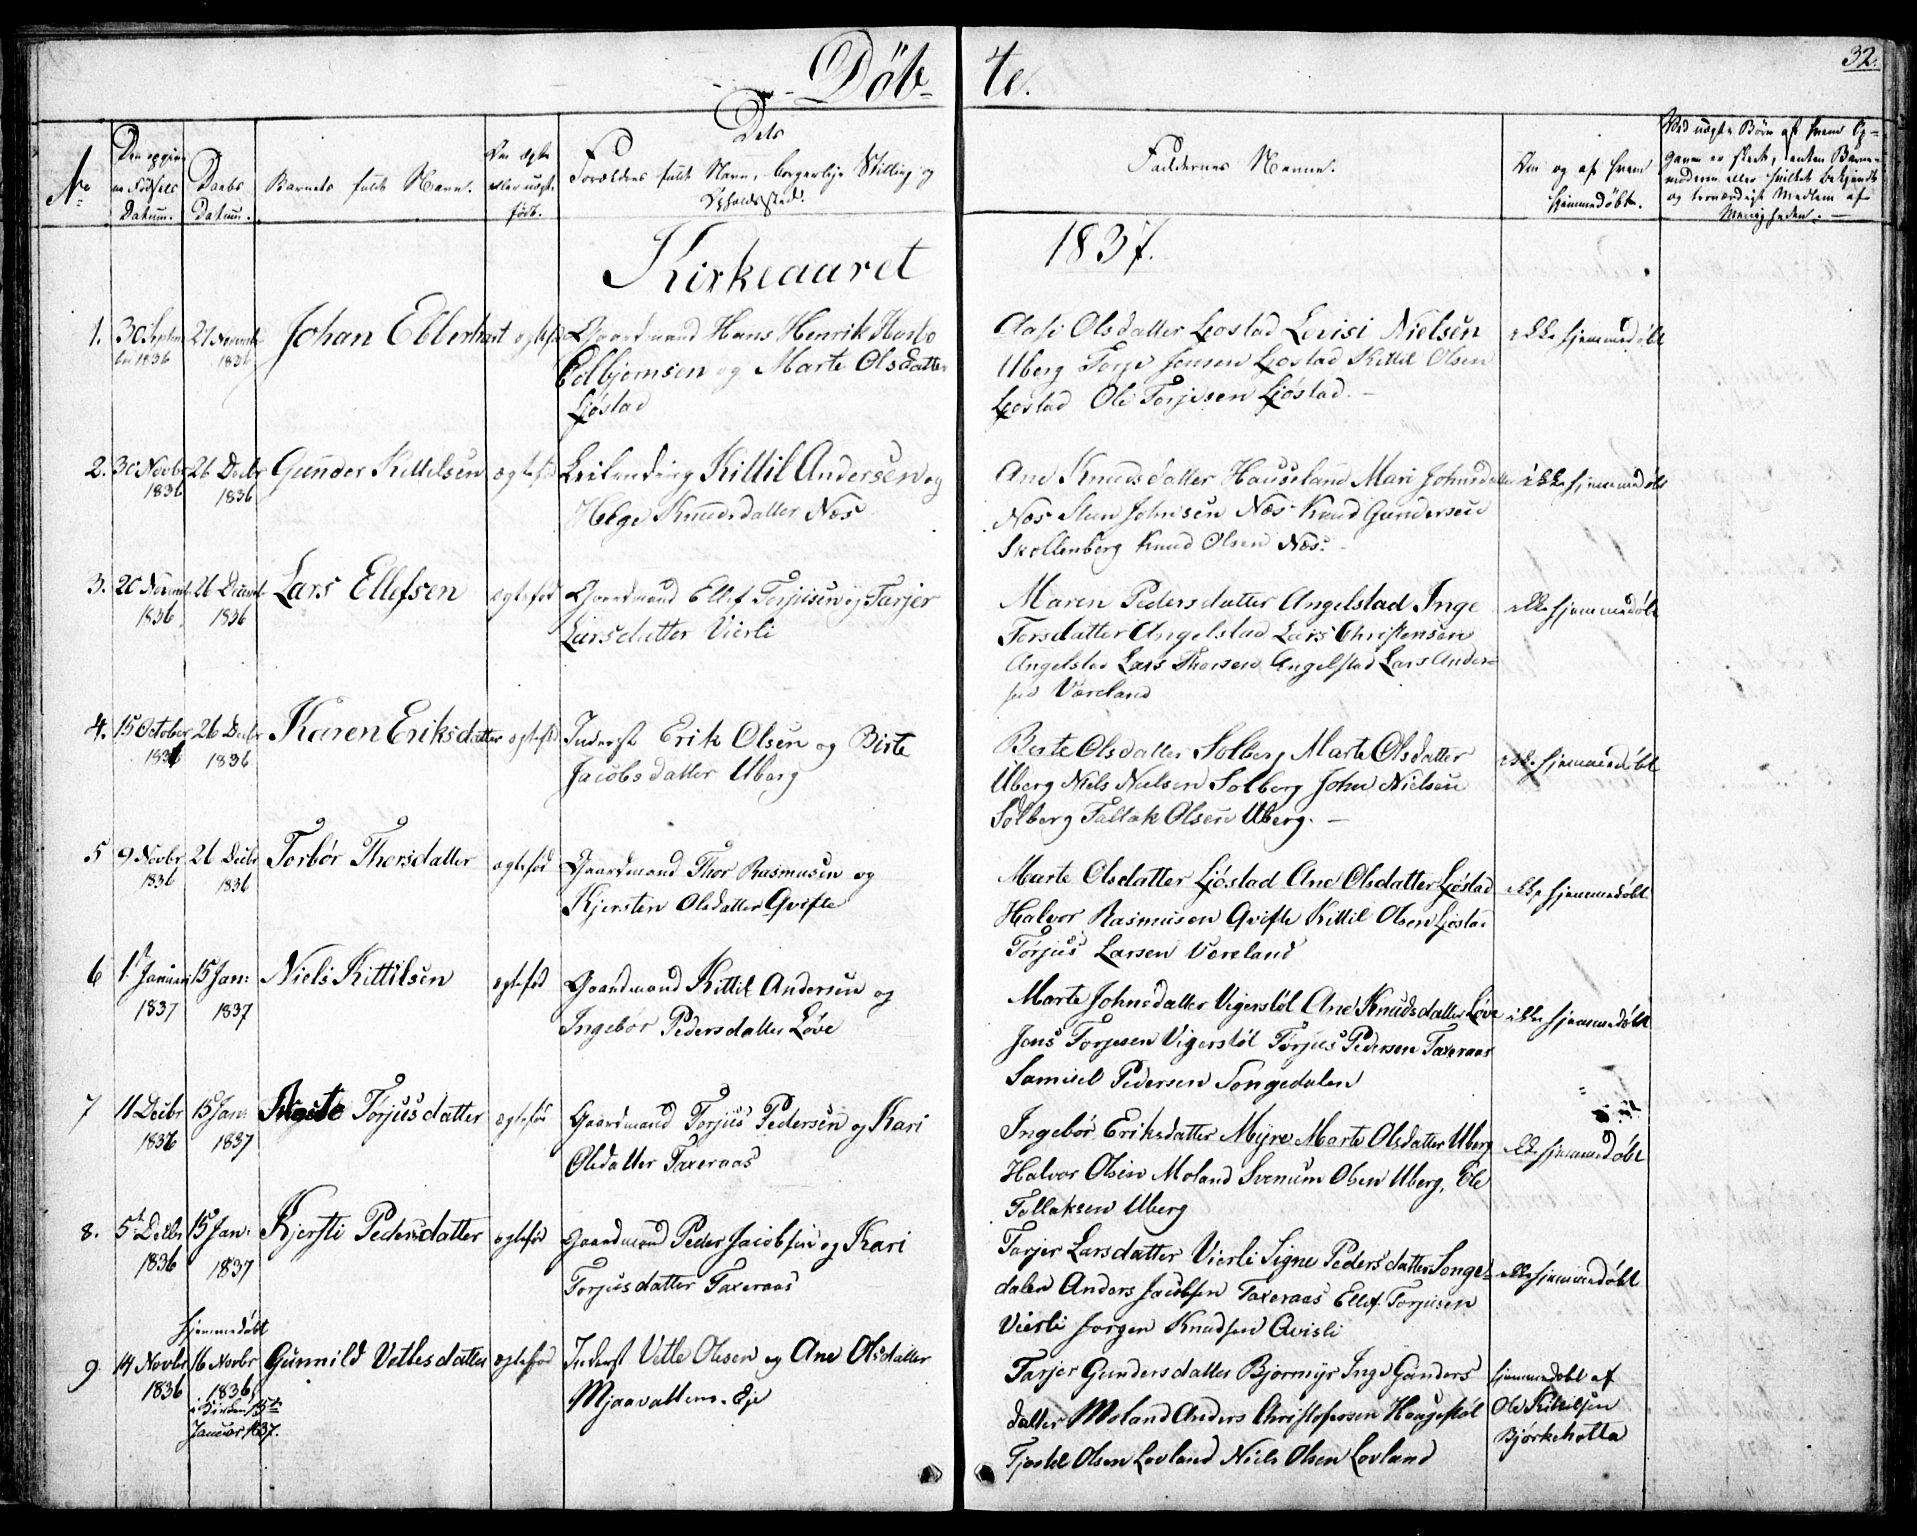 32.
Döb- te.
No
Den opgivne Födsels Datum.
Daabs Datum.
Barnets fulde Navn.
Om ægte eller uægte född.
Dets Forældres fulde Navn, borgerlige Stilling og Opholdssted.
Faddernes Navne.
Om og af hvem hjemmedöbt.
Kirkeaaret 1837.
1. 30 Septem- 27 Novembr Johan Ebberhart egtefød Gaardmand Hans Henrik
ber 1836 1836
og Marte Olsdatter
Ljöstad
Aase Olsdatter Ljostad Lovisi Nielsen
Uberg Torje Jensen Ljostad Kittil Olsen
Ljostad Ole Torjesen Ljöstad. -
ikke hjemmedöbt
2. 30 Novbr 26 Decbr Gunder Kittelsen egtefød Leilending Kittil Andersen og
1836 1836
Helge Knudsdatter Næs
Ane Knudsdatter Hauseland Mari Johnsdatter
Næs Johnsen Næs Knud Gundersen
Skollenberg Knud Olsen Næs. -
ikke hjemmedöbt
3. 20 Novemb. 26 Decemb. Lars Ellefsen egtefød Gaardmand Ellef Torjusen og Tarjer
1836 1836
Larsdatter Vierli
Maren Pedersdatter Angelstad Inge
Torsdatter Angelstad Lars Christensen
Angelstad Lars Thorsen Angelstad Lars Ander-
sen Væreland
ikke hjemmedöbt
4. 15 October 26 Decbr Karen Eriksdatter egtefød Inderst Erik Olsen og Birte
1836 1836
Jacobsdatter Uberg
Berte Olsdatter Solberg Marte Olsdatter
Uberg Niels Nielsen Solberg John Nielsen
Solberg Tallak Olsen Uberg. -
ikke hjemmedöbt
5 9 Novbr 26 Decbr Torbör Thorsdatter egtefød Gaardmand Thor Rasmusen og
1836 1836
Kjersten Olsdatter Qvifte
Marte Olsdatter Ljöstad Ane Olsdatter Ljöstad
Halvor Rasmusen Qvifte Kittil Olsen Ljostad
Torjus Larsen Væreland
ikke hjemmedöbt
6 1 Januari 15 Jan: Niels Kittilsen egtefød Gaardmand Kittil Andersen og
1837 1837
Ingebor Pedersdatter Löve
Marte Johnsdatter Vigerstöl Ane Knudsdatter Löve
Jens Torjusen Vigerstöl Torjus Pedersen Taxeraas
Samuel Pedersen Songedalen
ikke hjemmedöbt
7 11 Decbr 15 Jan: Torjusdatter egtefød Gaardmand Torjus Pedersen og Kari
1836 1837
Olsdatter Taxeraas
Ingebör Eriksdatter Myre Marte Olsdatter Uberg
Halvor Olsen Moland Svenum Olsen Uberg, Ole
Tallaksen Uberg
ikke hjemmedöbt
8. 5te Decbr 15 Jan: Kjersti Pedersdatter egtefød Gaardmand Peder Jacobsen og Kari
1836 1837
Torjusdatter Taxeraas
Tarjer Larsdatter Vierli Signe Pedersdatter Songe-
dalen Anders Jacobsen Taxeraas Ellef Torjusen
Vierli Jorgen Knudsen Qvisli
ikke hjemmedöbt
hjemmedöbt
9. 14 Novbr 16 Novbr Gunnild Vetlesdatter egtefød Inderst Vetle Olsen og Ane Olsdatter
1836 1836
i Kirken 15de
Januar 1837.
Mjaavattens-Eje
Tarjer Gundersdatter Bjormyr Inge Gunders
datter Moland Anders Christofersen Haugestöl
Olsen Lovland Niels Olsen Lovland
hjemmedöbt af
Ole Kittilsen
Björkehotta